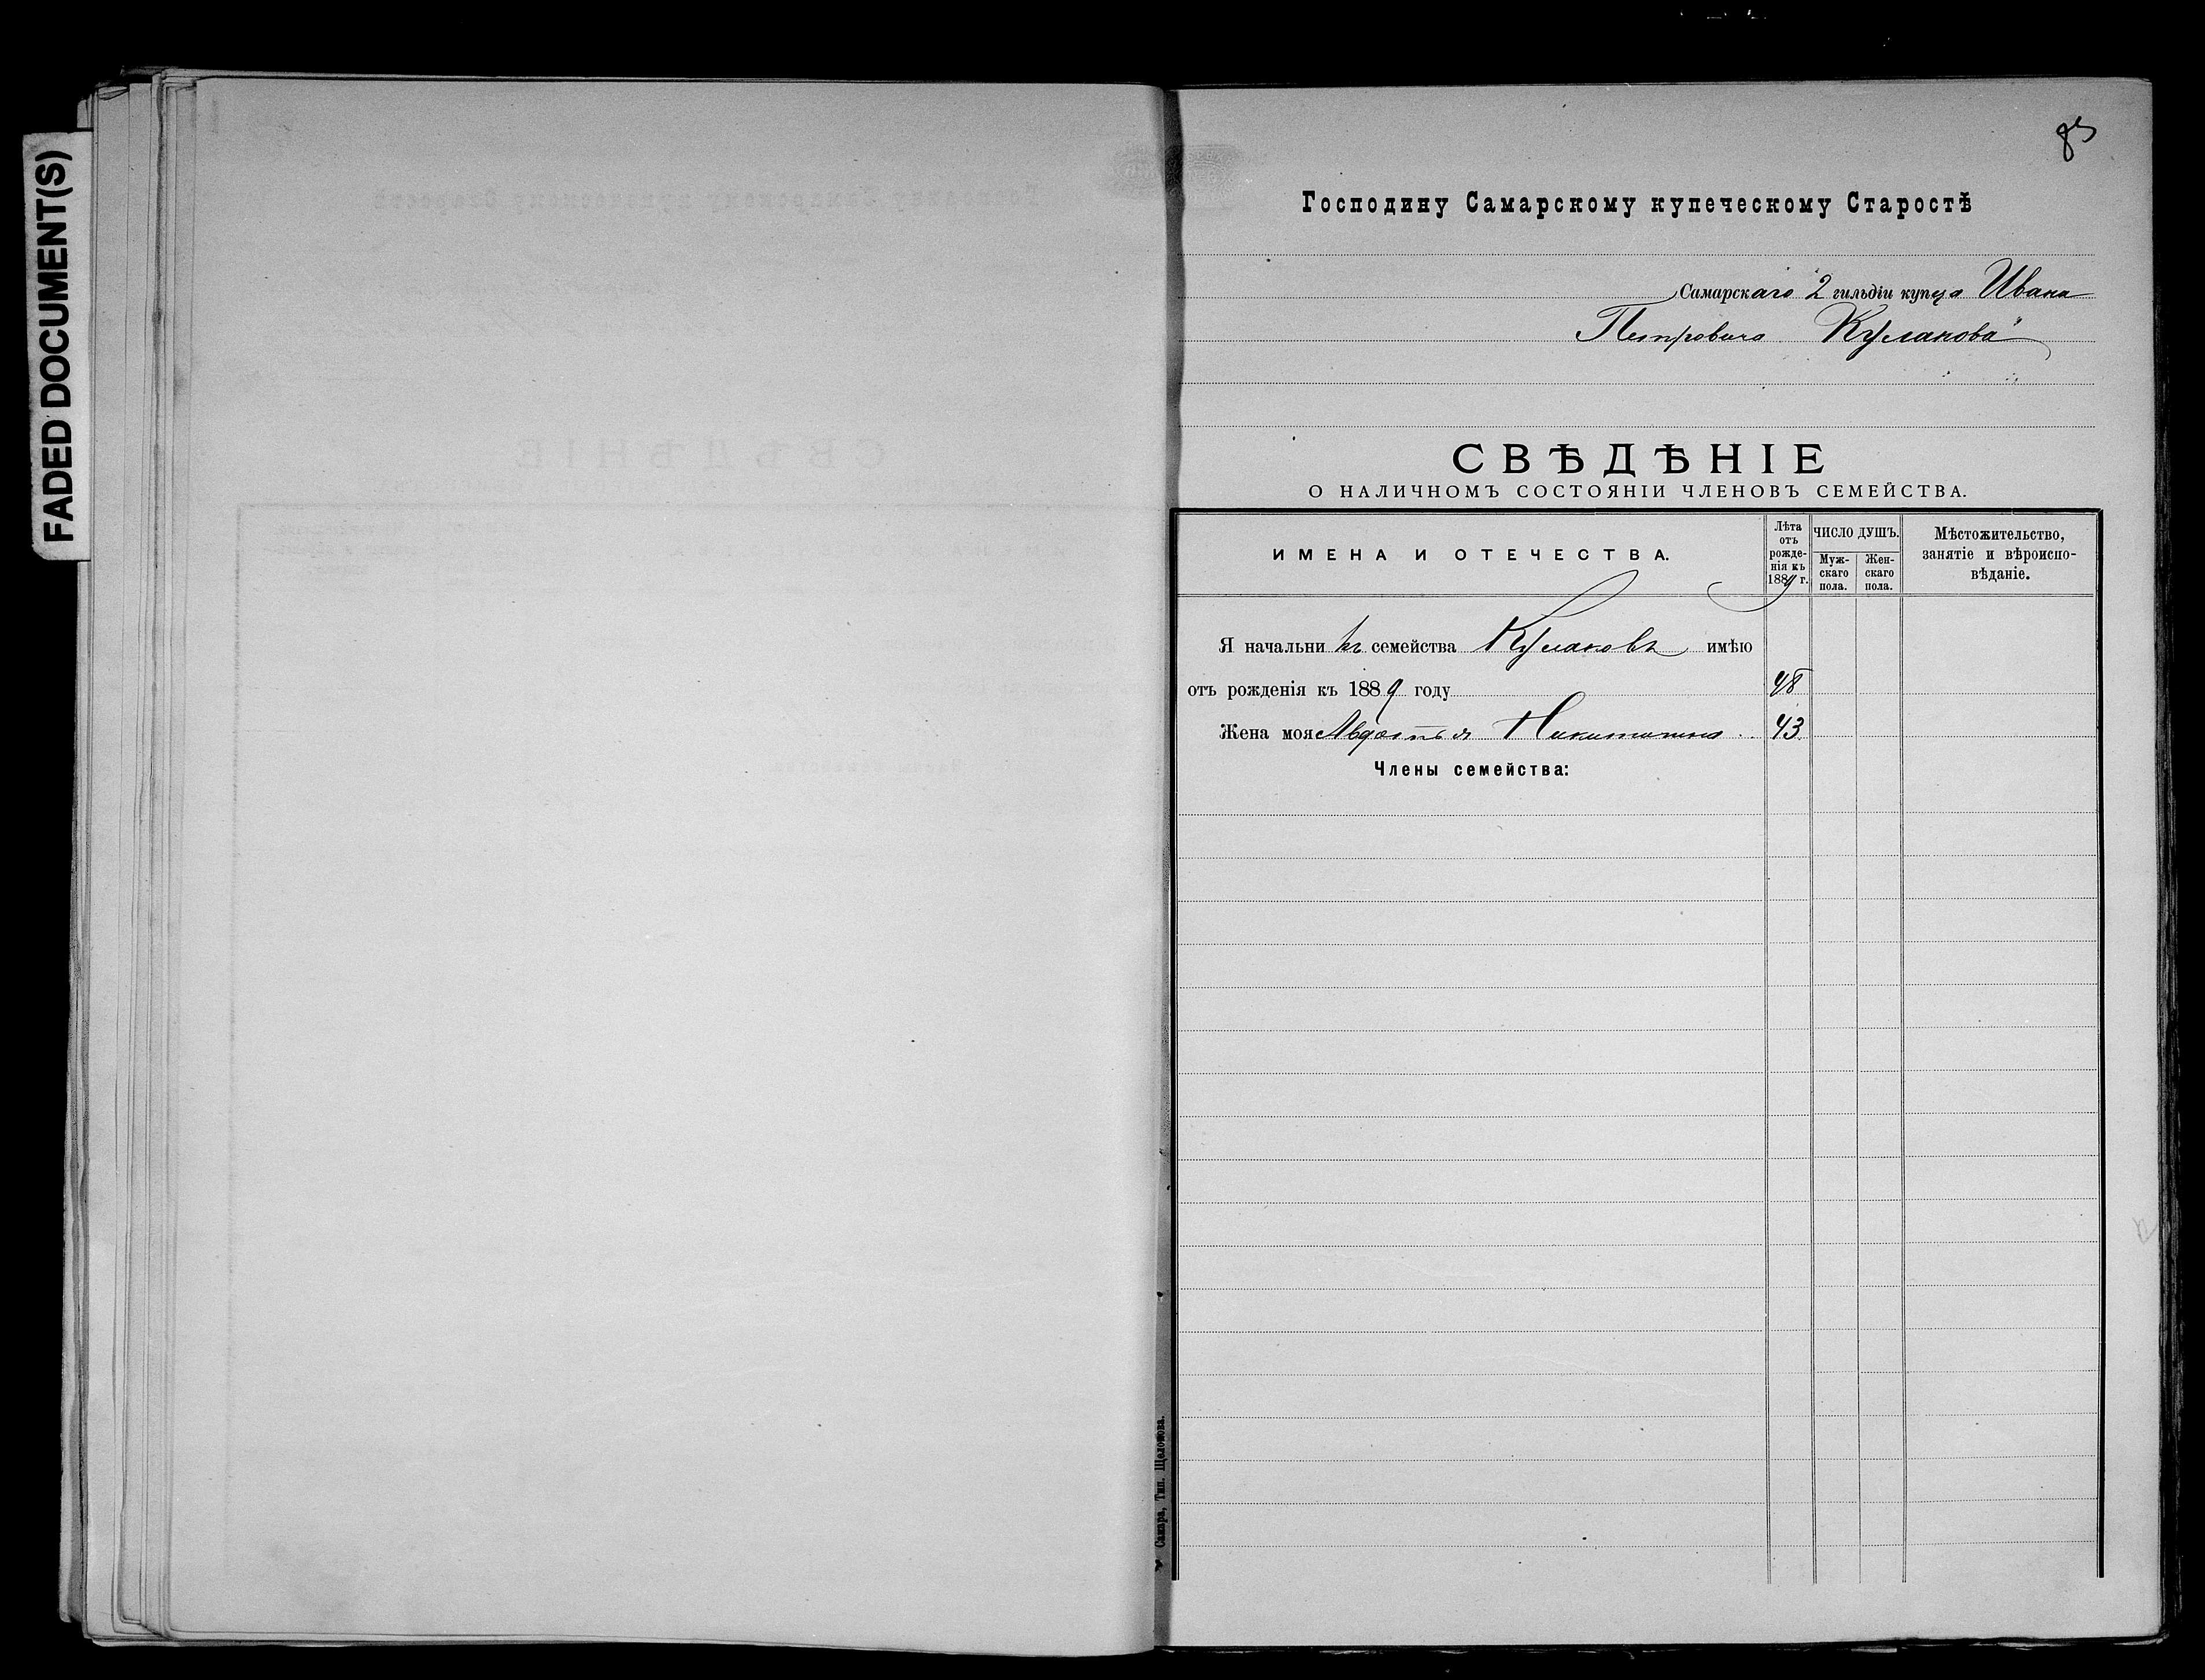 FADED DOCUMENT(S)
83
Господину Самарскому купеческому Старостѣ
Самарскаго 2 гильдіи купца Ивана
Петровича Кулакова
СВѢДѢНІЕ
О НАЛИЧНОМЪ СОСТОЯНІИ ЧЛЕНОВЪ СЕМЕЙСТВА.
ИМЕНА И ОТЕЧЕСТВА.
Лѣта
отъ
рожде-
нія къ
1889 г.
ЧИСЛО ДУШЪ.
Муж-
скаго
пола.
Жен-
скаго
пола.
Мѣстожительство,
занятіе и вѣроиспо-
вѣданіе.
Я начальникъ семейства Кулаковъ имѣю
отъ рожденія къ 1889 году 48
Жена моя Авдотья Никитична 43
Члены семейства:
Самара, Тип. Щелокова.